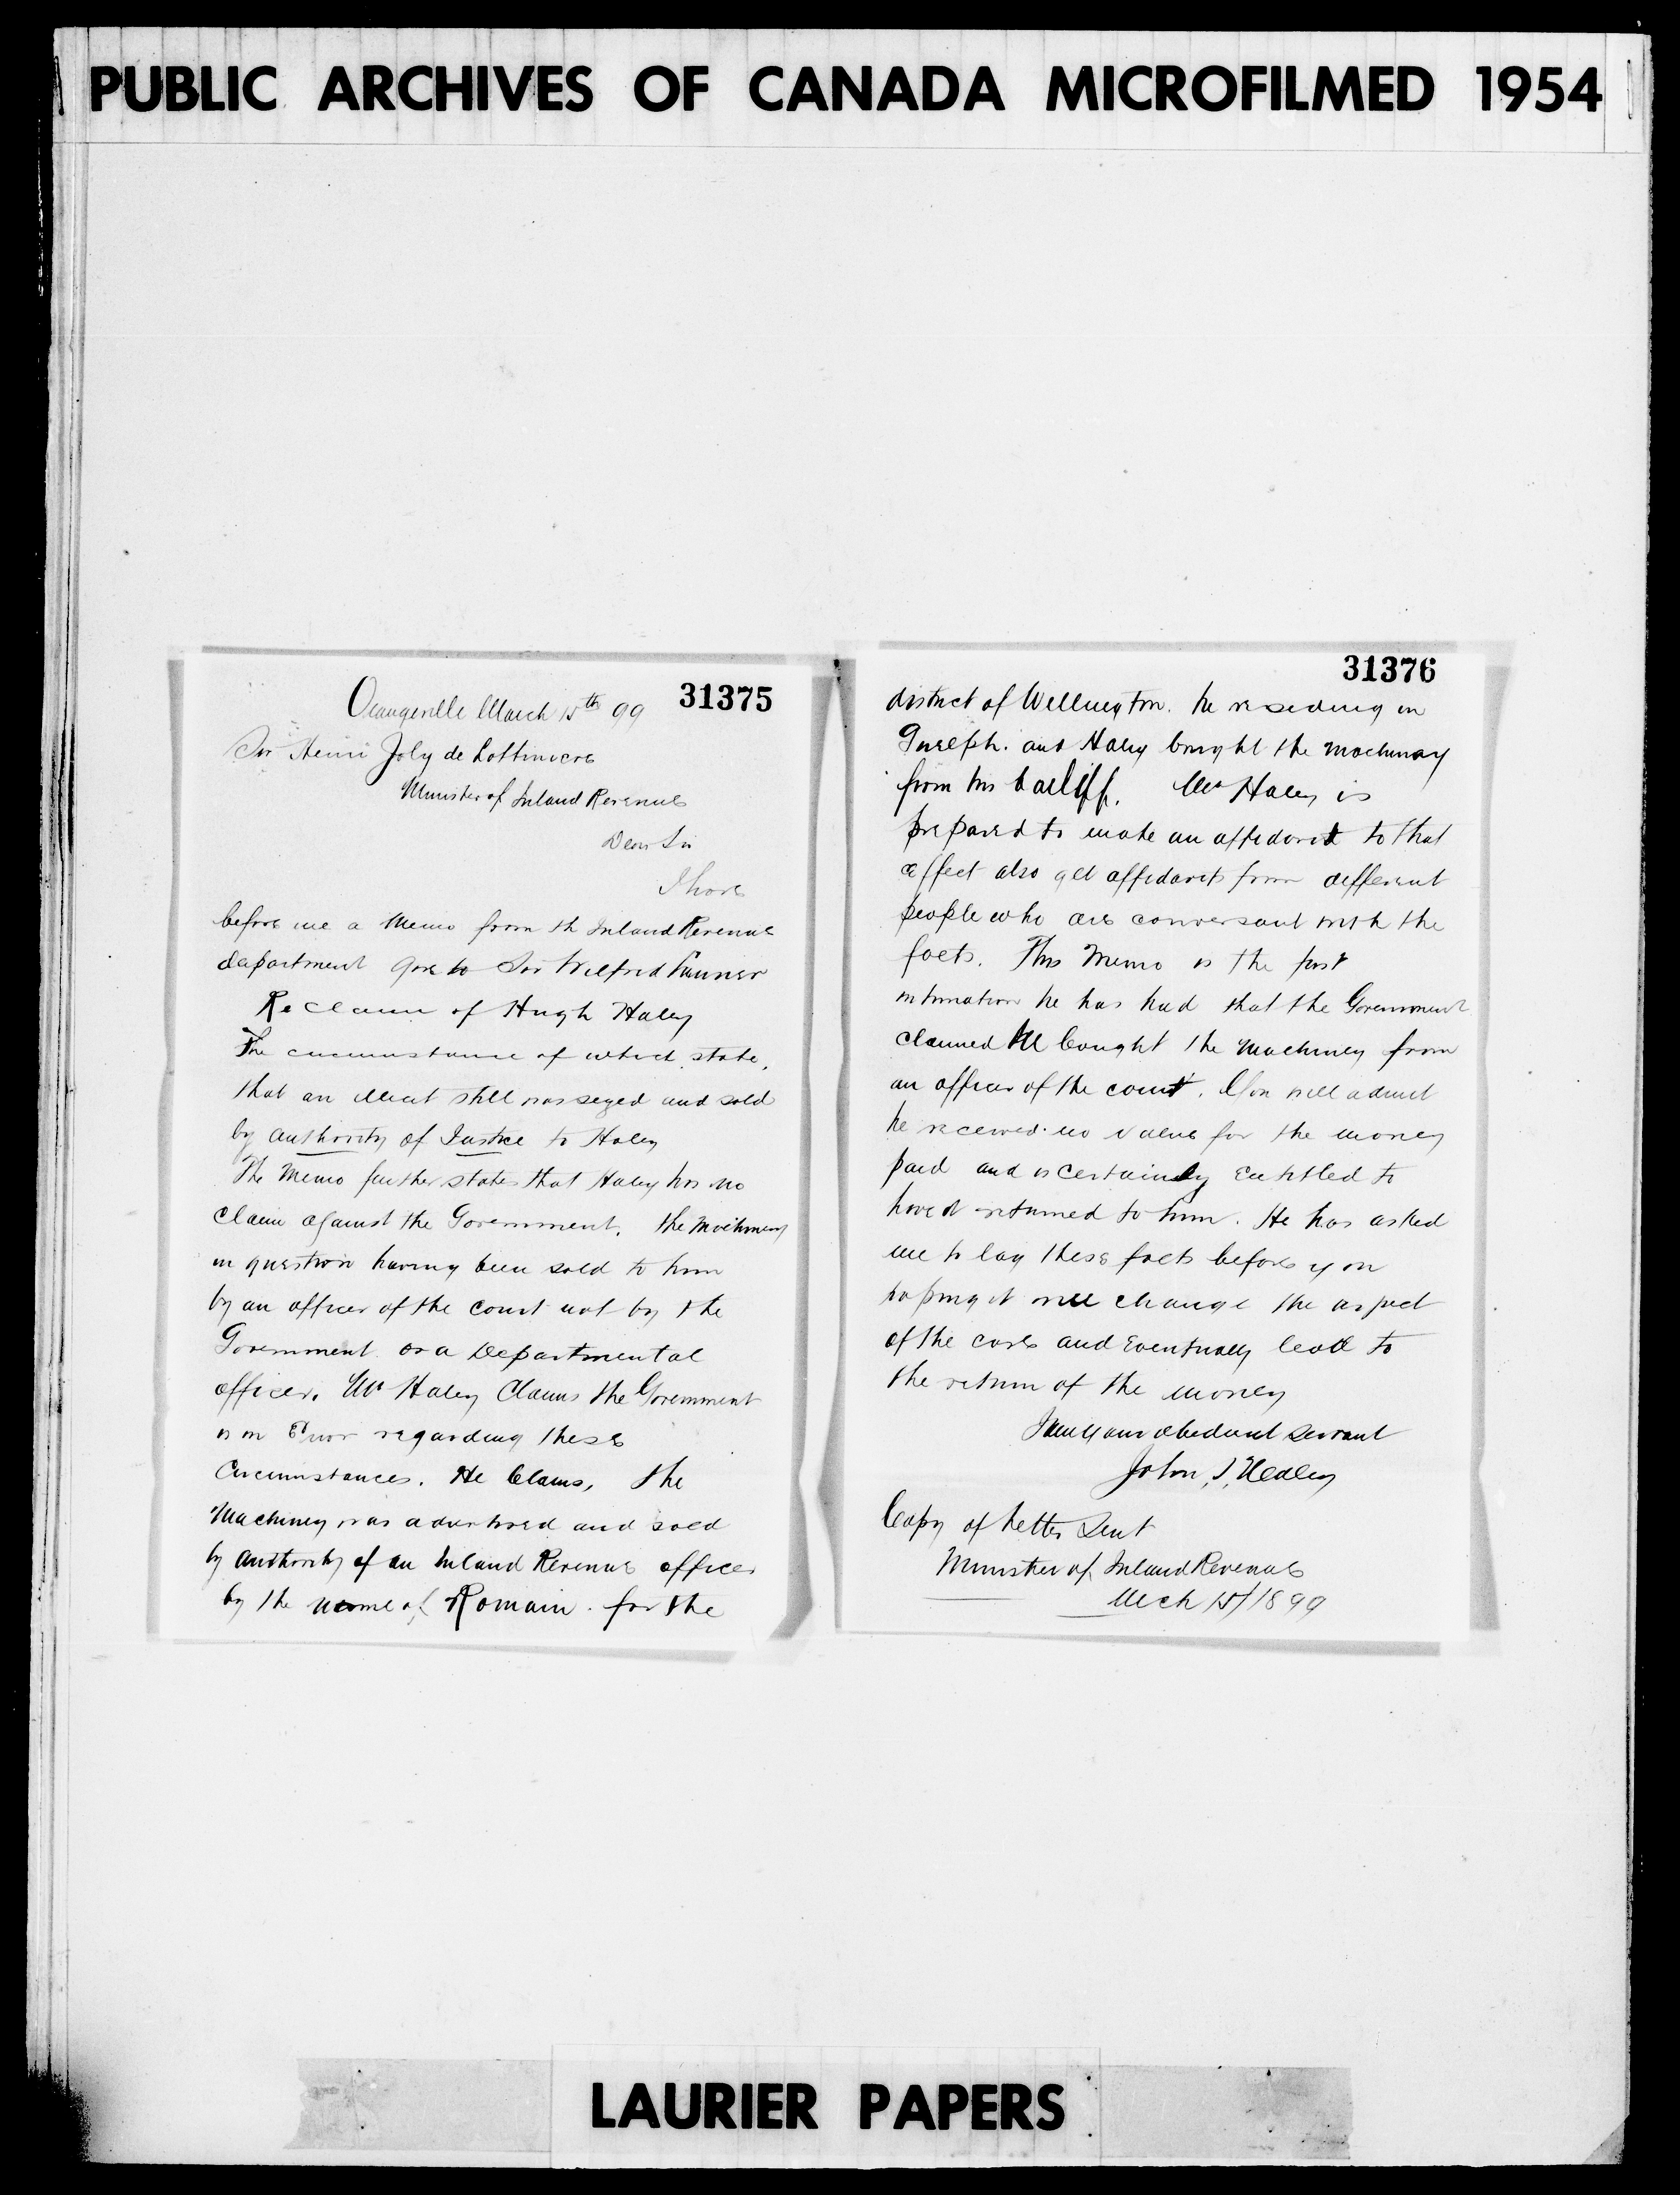 PUBLIC ARCHIVES OF CANADA MICROFILMED 1954
31375
Orangeville March 15th 99
Sir Henri Joly de Lottiniere
Minister of Inland Revenue
Dear Sir
I have
before me a Memo from th Inland Revenue
department to Sir Wilfrid
Re Claim of Hugh Haley
The circumstance of which state,
that an illicit still was seyed and sold
by authority of Justice to Haley
The Memo further states that Haley has no
claim against the Government. The Machinery
in question having been sold to him
by an officer of the court not by the
Government or a Departmental
officer. Mr Haley Claims the Government
is in Error regarding these
Circumstances. He Claims, the
Machinery was advertised and sold
by authority of an Inland Revenue officer
by the name of Romain. for the
31376
district of Wellington. he residing in
Guelph. and Haley bought the machinery
from his bailiff. Mr Haley is
prepared to make an affidavit to that
effect also get affidavits from different
people who are conversant with the
facts. This Memo is the first
intimation he has had that the Government
claimed he bought the Machinery from
an officer of the court. You will admit
he received no value for the money
paid and is certainly Entitled to
have it returned to him. He has asked
me to lay these facts before you
hoping it will change the aspect
of the case and Eventually lead to
the return of the money
I am your obedient servant
John Hedley
Copy of letter Sent
Minister of Inland Revenue
Mch 15/1899
LAURIER PAPERS